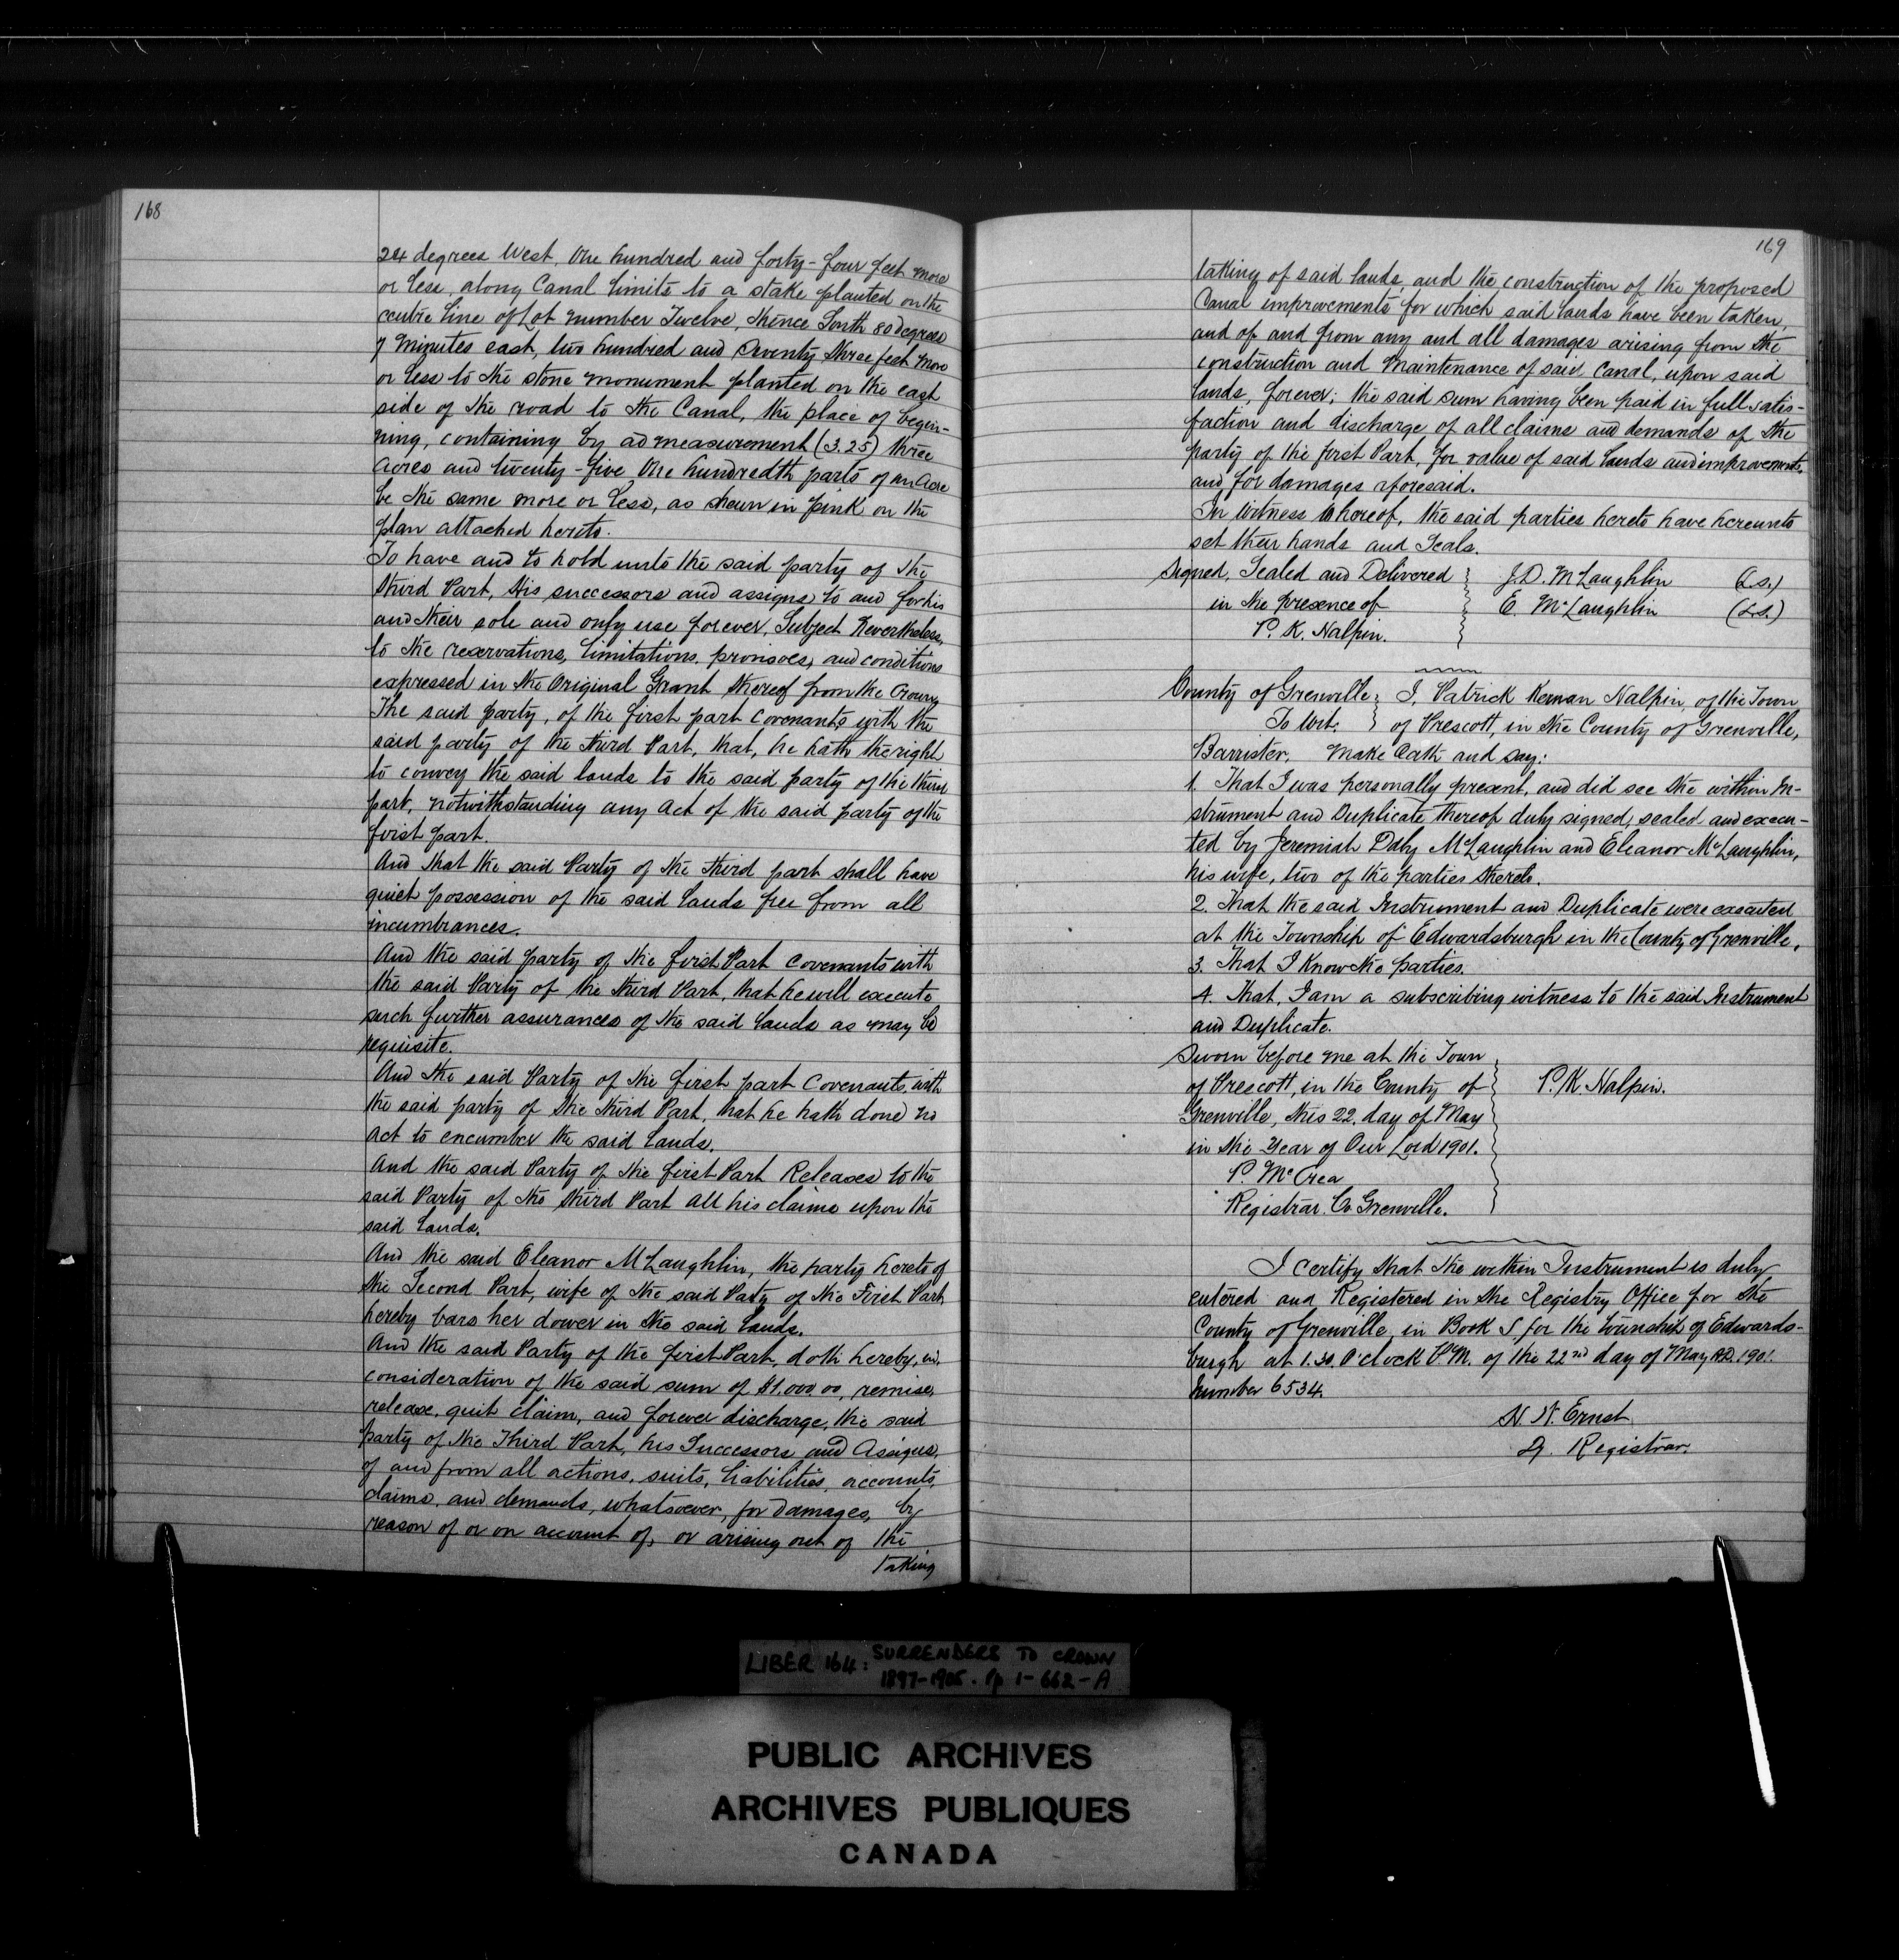 168
24 degrees West, One hundred and forty-four feet more
or less, along Canal Limits to a stake planted on the
centre line of Lot number Twelve, thence South 80 degrees
7 minutes east, two hundred and Seventy three feet more
or less to the stone monument planted on the east
side of the road to the Canal, the place of begin-
ning, containing by admeasurement (3.25) three
acres and twenty-five One hundredth parts of an Acre
be the same more or less, as shewn in pink on the
plan attached hereto.
To have and to hold unto the said party of the
third Part, His successors and assigns to and for his
and their sole and only use forever, Subject Nevertheless,
to the reservations, limitations, provisoes, and conditions
expressed in the Original Grant thereof from the Crown
The said party, of the first part Covenants with the
said party of the third Part, that, he hath the right
to convey the said lands to the said party of the third
part, notwithstanding any act of the said party of the
first part.
And that the said Party of the third part shall have
quiet possession of the said lands free from all
incumbrances.
And the said party of the first Part Covenants with
the said Party of the third Part, that he will execute
such further assurances of the said lands as may be
requisite.
And the said Party of the first part Covenants with
the said party of the third Part, that he hath done no
act to encumber the said lands.
And the said Party of the first Part Releases to the
said Party of the third Part all his claims upon the
said lands.
And the said Eleanor McLaughlin, the party hereto of
the Second Part, wife of the said Party of the First Part,
hereby bars her dower in the said lands.
And the said Party of the first Part, doth hereby, in
consideration of the said sum of $1,000.00, remise,
release, quit claim, and forever discharge, the said
party of the Third Part, his Successors and Assigns,
of and from all actions, suits, liabilities, accounts,
claims, and demands, whatsoever, for damages, by
reason of or on account of, or arising out of the
taking
169
taking of said lands, and the construction of the proposed
Canal improvements for which said lands have been taken,
and of and from any and all damages arising from the
construction and maintenance of said Canal, upon said
lands, forever; the said sum having been paid in full satis-
faction and discharge of all claims and demands of the
party of the first Part, for value of said lands and improvements,
and for damages aforesaid.
In witness whereof, the said parties hereto have hereunto
set their hands and Seals.
Signed, Sealed and Delivered } J. D. McLaughlin (L.s.)
in the presence of } E McLaughlin (L.s.)
P. K. Halpin.
County of Grenville } I, Patrick Kernan Halpin, of the Town
To wit: } of Prescott, in the County of Grenville,
Barrister, make Oath and say:
1. That I was personally present, and did see the within In-
strument and Duplicate thereof duly signed, sealed and execu-
ted by Jeremiah Daly McLaughlin and Eleanor McLaughlin,
his wife, two of the parties thereto.
2. That the said Instrument and Duplicate were executed
at the Township of Edwardsburgh in the County of Grenville.
3. That I Know the parties.
4. That, I am a subscribing witness to the said Instrument
and Duplicate.
Sworn before me at the Town
of Prescott, in the County of } P. K Halpin.
Grenville, this 22. day of May
in the Year of Our Lord 1901.
P. McCrea
Registrar. Co. Grenville.
I certify that the within Instrument is duly
entered and Registered in the Registry Office for the
County of Grenville, in Book S. for the township of Edwards-
burgh at 1.30 O'clock P.M. of the 22nd day of May A.D. 1901.
number 6534.
H. N. Ernst
D. Registrar.
LIBER 164: SURRENDERS TO CROWN
1897-1905. Pp 1-662-A
PUBLIC ARCHIVES
ARCHIVES PUBLIQUES
CANADA